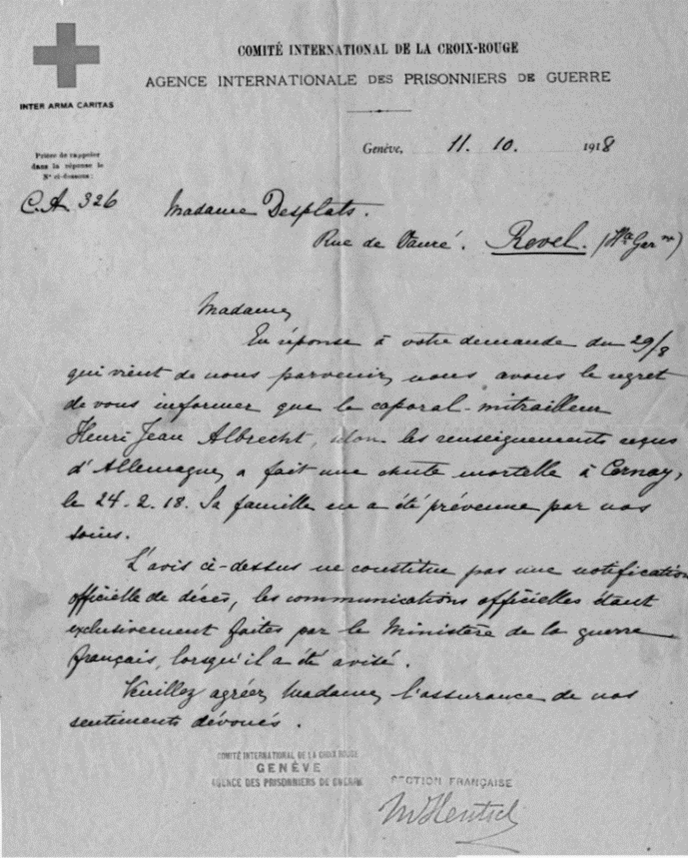 COMITÉ INTERNATIONAL DE LA CROIX-ROUGE
AGENCE INTERNATIONALE DES PRISONNIERS DE GUERRE
INTER ARMA CARITAS
Genève, 11. 10. 1918
Prière de rappeler
dans la réponse le
N° ci-dessous:
C.A. 326
Madame Desplats.
Rue de Vauré. Revel. (Hte Garne)
Madame,
En réponse à votre demande du 29/8
qui vient de nous parvenir, nous avons le regret
de vous informer que le caporal-mitrailleur
Henri Jean Albrecht, selon les renseignements reçus
d'Allemagne, a fait une chute mortelle à Cernay,
le 24. 2. 18. Sa famille en a été prévenue par nos
soins.
L'avis ci-dessus ne constitue pas une notification
officielle de décès, les communications officielles étant
exclusivement faites par le Ministère de la guerre
français, lorsqu'il a été avisé.
Veuillez agréer, Madame, l'assurance de nos
sentiments dévoués.
COMITÉ INTERNATIONAL DE LA CROIX ROUGE
GENÈVE
AGENCE DES PRISONNIERS DE GUERRE
SECTION FRANÇAISE